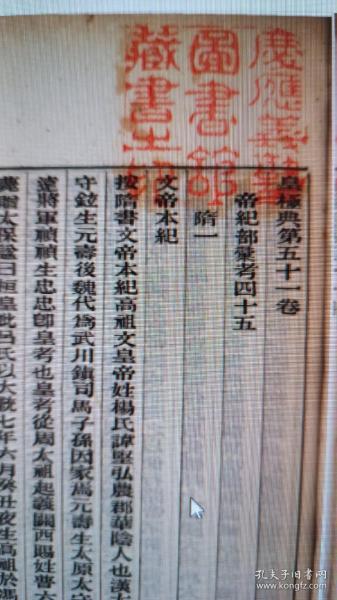 慶應義塾
圖書館
藏書之印
皇極典第五十一卷
帝紀部彙考四十五
隋一
文帝本紀
按隋書文帝本紀高祖文皇帝姓楊氏諱堅弘農郡華陰人也漢太
守鉉生元壽後魏代爲武川鎮司馬子孫因家焉元壽生太原太守
遠將軍禎禎生忠忠卽皇考也皇考從周太祖起義關西賜姓普六
薨贈太保諡曰桓皇妣呂氏以大統七年六月癸丑夜生高祖於馮
孔夫子旧书网